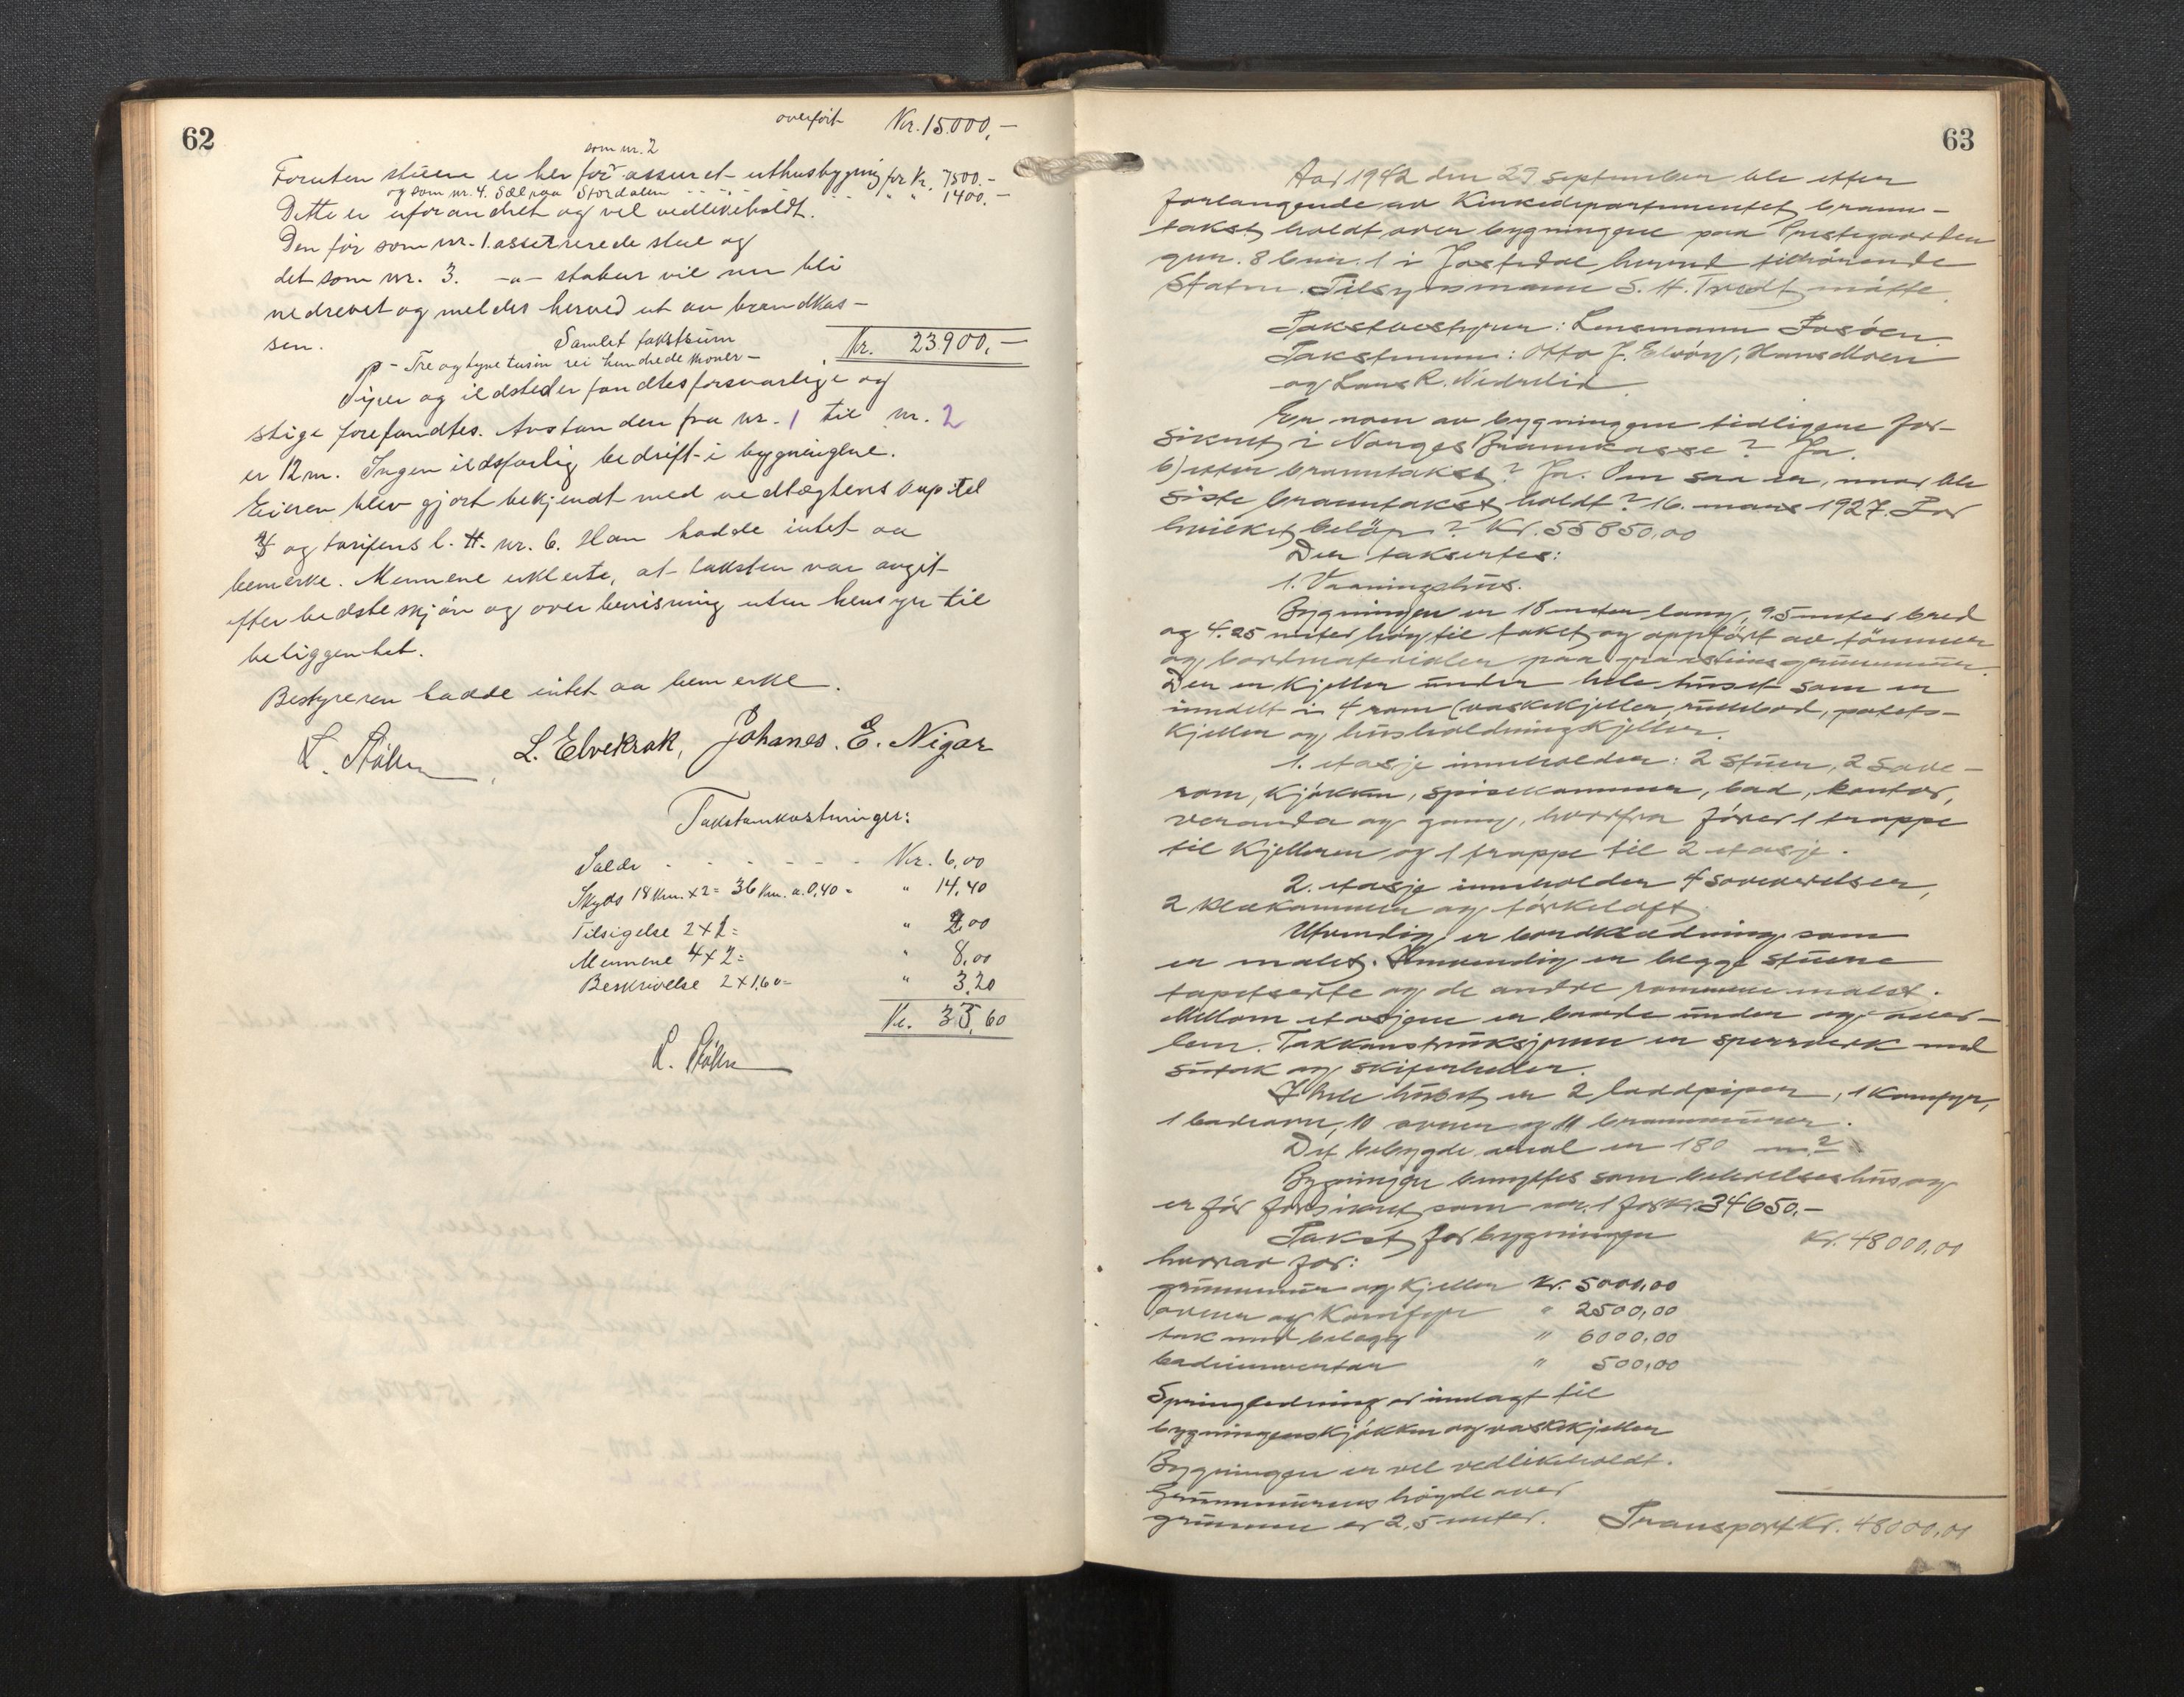 62
overført Kr. 15.000,-
som nr. 2
Foruten stuene er her før assuret uthusbygning for Kr. 7500.-
og som nr. 4. Sel paa Stordalen - - - - " " 1400.-
Dette er uforandret og vel vedlikeholdt.
Den før som nr. 1. assurerede stue og
det som nr. 3. -"- stabur vil nu bli
nedrevet og meldes herved ut av brandkas-
sen. Samlet takstsum Kr. 23900,-
- Tre og tyve tusin ni hundrede kroner -
Piper og ildsteder fandtes forsvarlige og
stige forefandtes. Avstanden fra nr. 1 til nr. 2
er 12 m. Ingen ildsfarlig bedrift i bygningene.
Eieren blev gjort bekjendt med vedtægtens kapitel
og tarifens l. H. nr. 6. Han hadde intet aa
bemerke. Mennene erklerte, at taksten var avgit
efter bedste skjøn og overbevisning uten hensyn til
beliggenhet.
Bestyreren hadde intet aa bemerke.
L. Elvekrok, Johanes. E. Nigar
Takstomkostninger:
Salær - - - - - - Kr. 6,00
Skyds 18 Km. x 2 = 36 Km. a. 0,40 = " 14,40
Tilsigelse 2 x 1 = " 2,00
Mennene 4 x 2 = " 8,00
Beskrivelse 2 x 1,60 = " 3,20
Kr. 33,60
63
Aar 1942 den 29 september ble etter
forlangende av Kirkedepartementet brann-
takst holdt over bygningene paa Prestegaarden
gnr. 8 bnr. 1 i Jostedal herred tilhørende
Staten. Tilsynsmann S. H. Tvedt møtte.
Takstbestyrer: Lensmann Fosøen.
Takstmenn: Otto J. Elvøy, Hans Moen
og Lars R. Nedrelid.
Er noen av bygningene tidligere for-
sikret i Norges Brannkasse? Ja.
b) etter branntakst? Ja. Om saa er, naar ble
siste branntakst holdt? 16. mars 1927. For
hvilket beløp? Kr. 55850,00
Der takseres:
1. Vaaningshus.
Bygningen er 18 meter lang, 9.5 meter bred
og 4.25 meter høy til taket og oppført av tømmer
og bordmaterialer paa graasteins grunnmur.
Der er kjeller under hele huset som er
inndelt i 4 rom (vaskekjeller, rullebod, potet-
kjeller og husholdningskjeller.
1. etasje inneholder: 2 stuer, 2 sove-
rom, kjøkken, spisekammer, bad, kontor,
veranda og gang, hvorfra fører 1 trappe
til kjelleren og 1 trappe til 2 etasje.
2. etasje inneholder 4 soveværelser,
2 klekammer og tørkeloft.
Utvendig er bordklædning som
er malet. Innvendig er begge stuene
tapetserte og de andre rommene malet.
Mellom etasjene er baade under og over-
lem. Takkonstruksjonen er sperreverk med
sutak og skiferheller.
I hele huset er 2 laddpiper, 1 komfyr,
1 badeovn, 10 ovner og 11 brannmurer.
Det bebygde areal er 180 m2
Bygningen benyttes som beboelseshus og
er før forsikret som nr. 1 for kr. 34650.-
Takst for bygningen Kr. 48000,00
hvorav for:
grunnmur og kjeller Kr. 5000,00
ovner og komfyr " 2500,00
tak med belegg " 6000,00
badeinventar " 500,00
Springledning er innlagt til
bygningens kjøkken og vaskekjeller
Bygningen er vel vedlikeholdt.
Grunnmurens høyde over
grunnen er 2,5 meter. Transport Kr. 48000,00